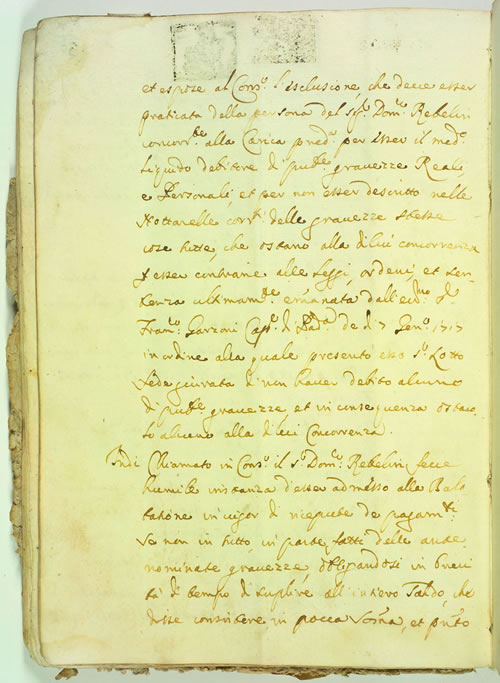 et espose al Cons:o l'esclusione, che deve esser
praticata della persona del sig:r Dom:co Rebelini
concorr:te alla Carica pred:a per esser il med:o
Liquido debitore di pub:e gravezze Reali,
e Personali, et per non esser descritto nelle
Nottarelle delle gravezze stesse
cose tutte, che ostano alla di lui concorrenza
p esser contrarie alle Leggi, ordeni, et Sen-
tenza ultimam:te emanata dall'
Fran:co Garzoni Cap:o di Pad:a de di 7 Gen:o 1717
in ordine alla quale presentò esso S:r Lotto
fede giurata di non haver debito alcuno
di pub:e gravezze et in conseguenza ostaco-
lo alcuno alla di lui Concorrenza.
Indi Chiamato in Cons:o il S:r Dom:co Rebelini fece
humile instanza d'esser admesso alla Balo-
tatione in vigor di ricepute de pagam:ti
se non in tutto in parte fatti delle ante
nominate gravezze, obligandosi in brevi-
tà di tempo di suplire all'intiero Saldo, che
disse consistere in pocca Soma, et